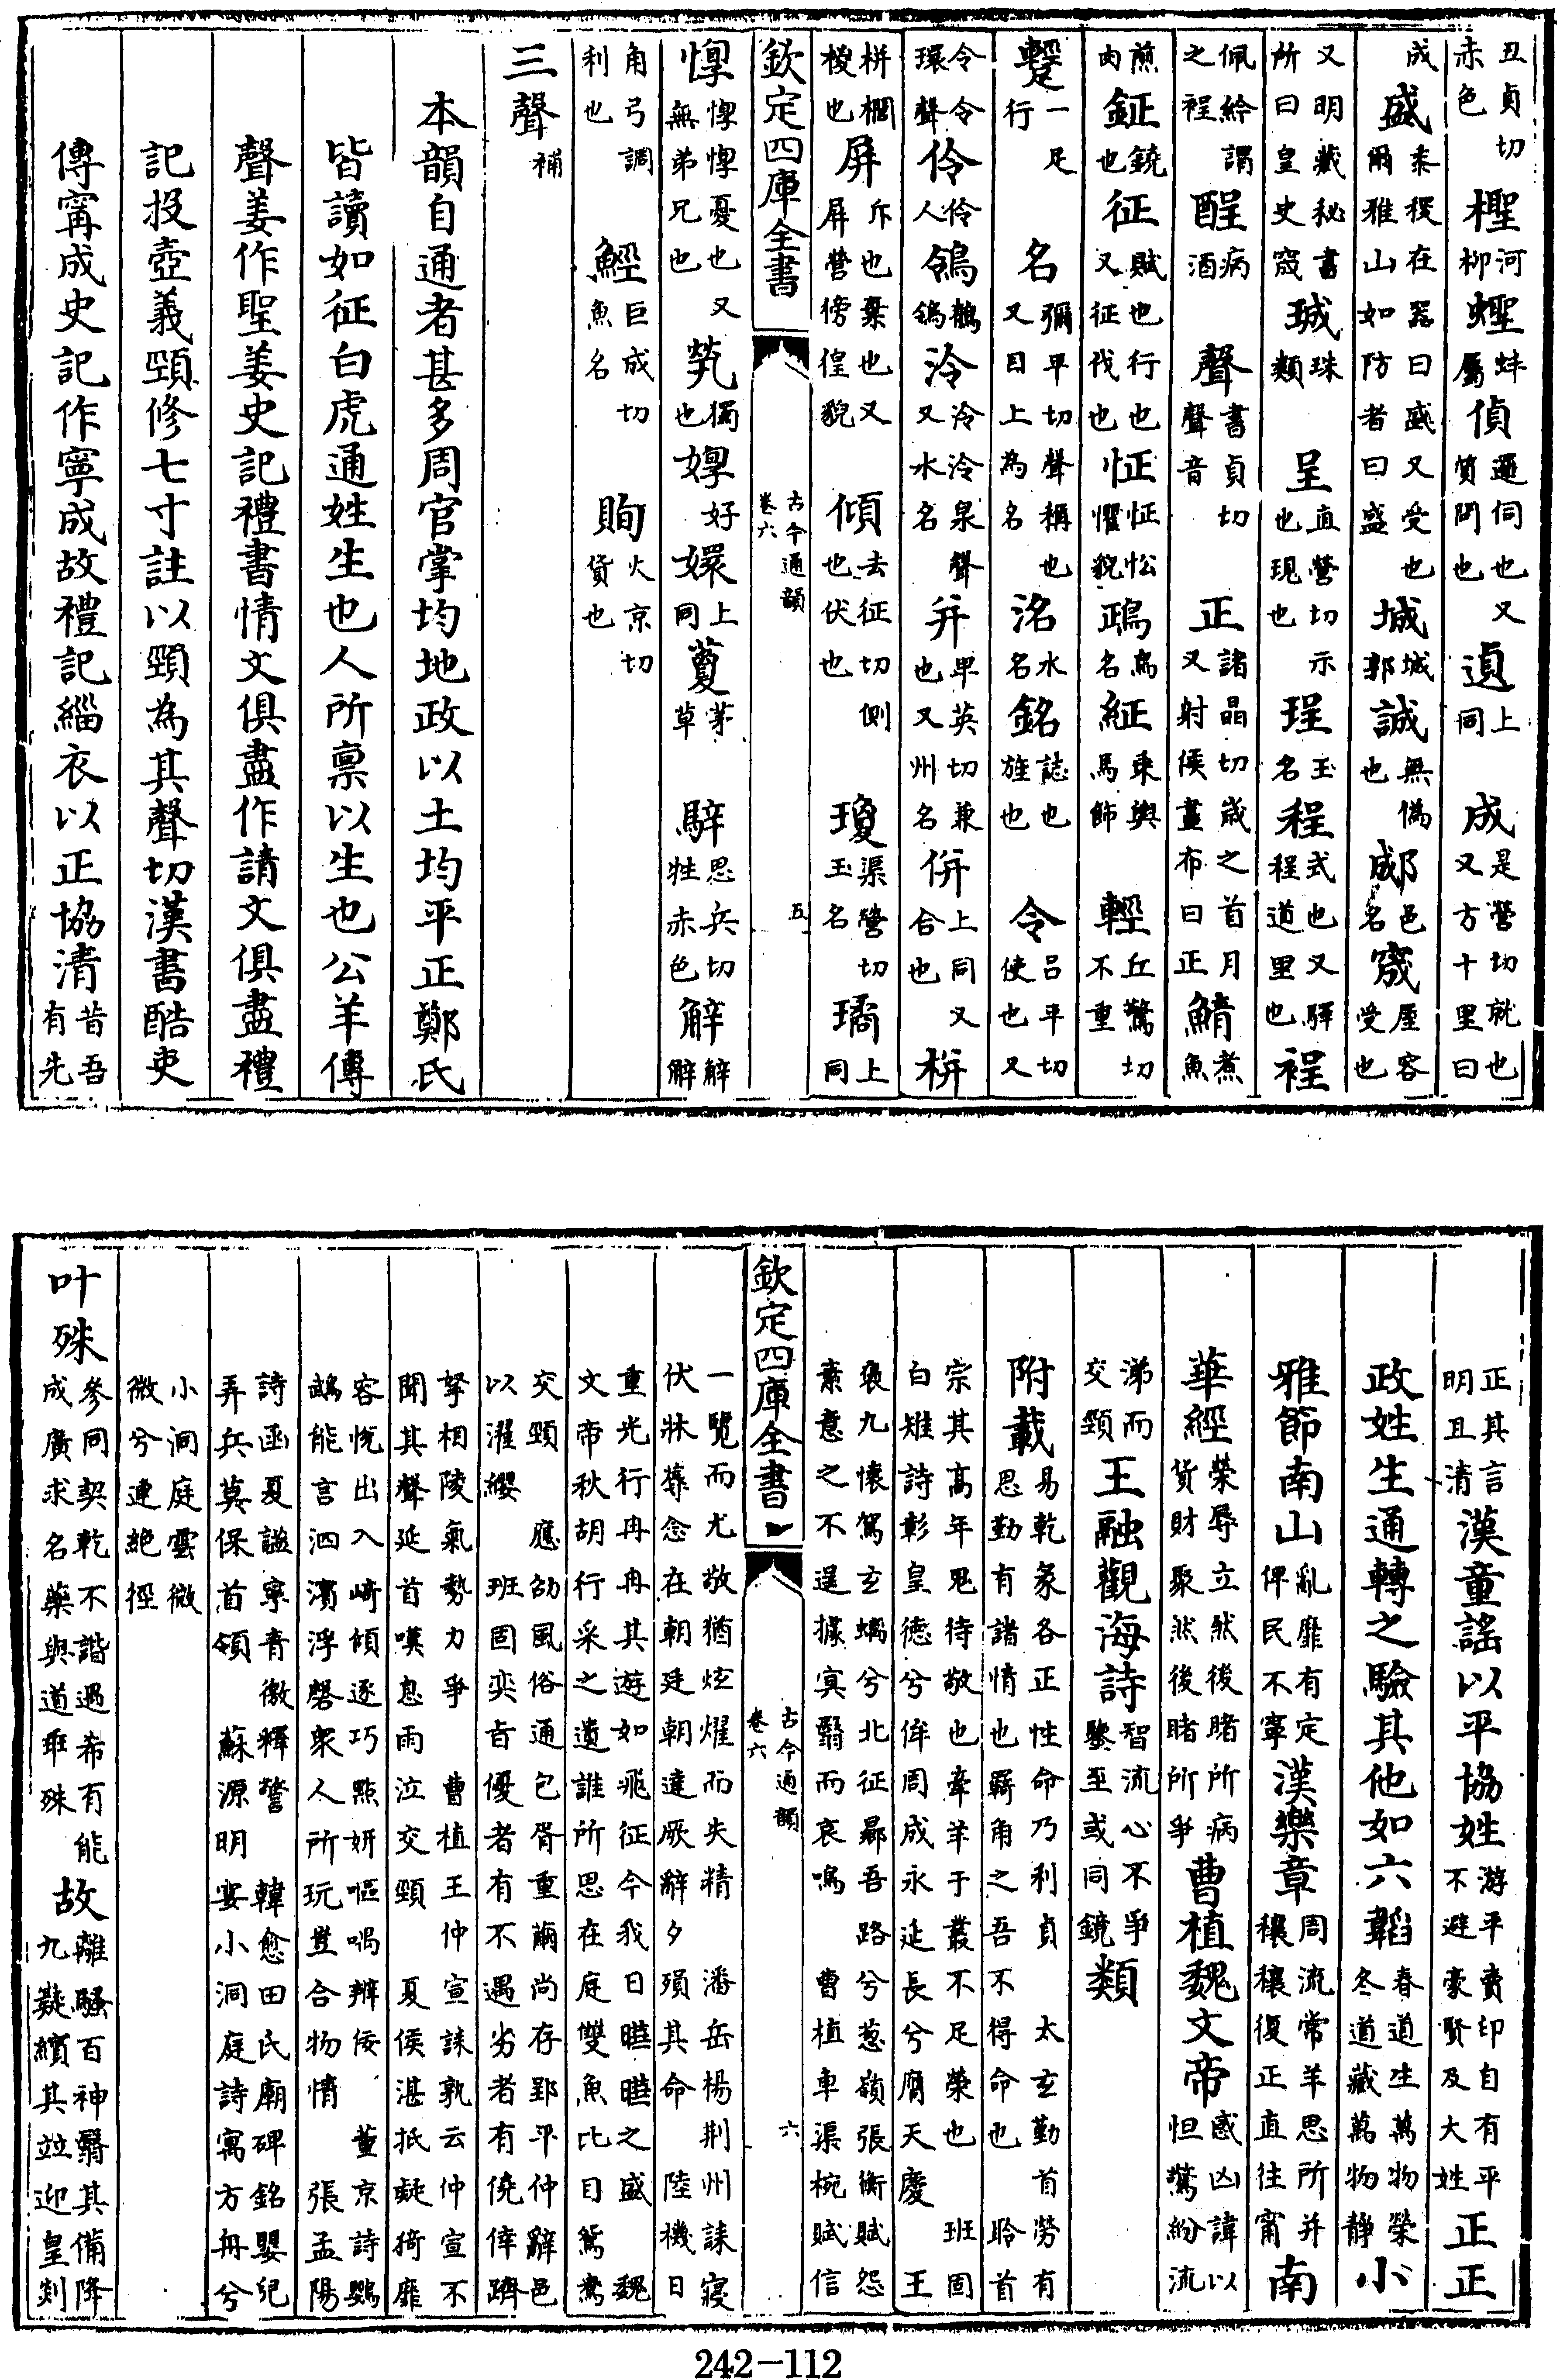 丑貞切赤色檉河柳蟶蚌屬偵邏伺也又質問也遉上同成是營切就也又方十里曰
成盛黍稷在器曰盛又受也爾雅山如防者曰盛城城郭誠無偽也郕邑名宬屋容受也
又明藏秘書所曰皇史宬珹珠類呈直營切示也現也珵玉名程式也又驛程道里也裎
佩給謂之裎酲病酒聲書貞切聲音正諸晶切歲之首月又射侯畫布曰正鯖煮魚
煎肉鉦鐃也征賦也行也又征伐也怔怔忪懼貌鴊鳥名乘輿馬飾輕丘驚切不重
一足行名彌平切聲稱也又目上為名洺水名銘誌也旌也令呂平切使也又
令令環聲伶伶人鴒鶺鴒泠泠泠泉聲又水名并卑英切兼也又州名併上同又合也栟
栟櫚椶也屏斥也棄也又屏營徬徨貌傾去征切側也伏也瓊渠營切玉名璚上同
欽定四庫全書 古今通韻卷六 五
惸惸惸憂也又無弟兄也煢獨也好嬛上同藑茅草騂思兵切牲赤色觪觪觪
角弓調利也巨成切魚名火京切貨也
三聲補
本韻自通者甚多周官掌均地政以土均平正鄭氏
皆讀如征白虎通姓生也人所禀以生也公羊傳
聲姜作聖姜史記禮書情文俱盡作請文俱盡禮
記投壺義頸修七寸註以頸為其聲切漢書酷吏
傳甯成史記作寧成故禮記緇衣以正協清昔吾有先
正其言明且清漢童謠以平協姓游平賣印自有平不避豪賢及大姓正正
政姓生通轉之驗其他如六韜春道生萬物榮冬道藏萬物靜小
雅節南山亂靡有定俾民不寧漢樂章周流常羊思所并穰穰復正直往甯南
華經榮辱立然後睹所病貨財聚然後睹所爭曹植魏文帝感凶諱以怛驚紛流
涕而交頸王融觀海詩智流心不爭鑒至或同鏡類
附載易乾象各正性命乃利貞思勤有諸情也羇角之吾不得命也太玄勤首勞有聆首
宗其高年鬼待敬也牽羊于叢不足榮也班固白雉詩彰皇德兮侔周成永延長兮膺天慶王
褒九懷駕玄螭兮北征鄢吾路兮葱嶺張衡賦怨素意之不逞據冥翳而哀鳴曹植車渠椀賦信
欽定四庫全書 古今通韻卷六 六
一覽而尤敬猶炫燿而失精潘岳楊荆州誄寢伏牀蓐念在朝廷朝達厥辭夕殞其命陸機日
重光行冉冉其遊如飛征今我日暀暀之盛魏文帝秋胡行采之遺誰所思在庭雙魚比目鴛鴦
交頸應劭風俗通包胥重繭尚存郢平仲辭邑以濯纓班固奕旨優者有不遇劣者有僥倖躋
孥相陵氣勢力爭曹植王仲宣誄孰云仲宣不聞其聲延首嘆息雨泣交頸夏侯湛抵疑猗靡
容悅出入崎傾逐巧點妍嘔喝辨佞董京詩鸚鵡能言泗濱浮磬衆人所玩豈合物情張孟陽
詩函夏謐寧青徼釋警韓愈田氏廟碑銘嬰兒弄兵莫保首領蘇源明宴小洞庭詩寓方舟兮
小洞庭雲微微兮連絕徑
叶殊參同契乾不諧遇希有能成廣求名藥與道乖殊故離騷百神翳其備降九疑繽其竝迎皇剡
242–112